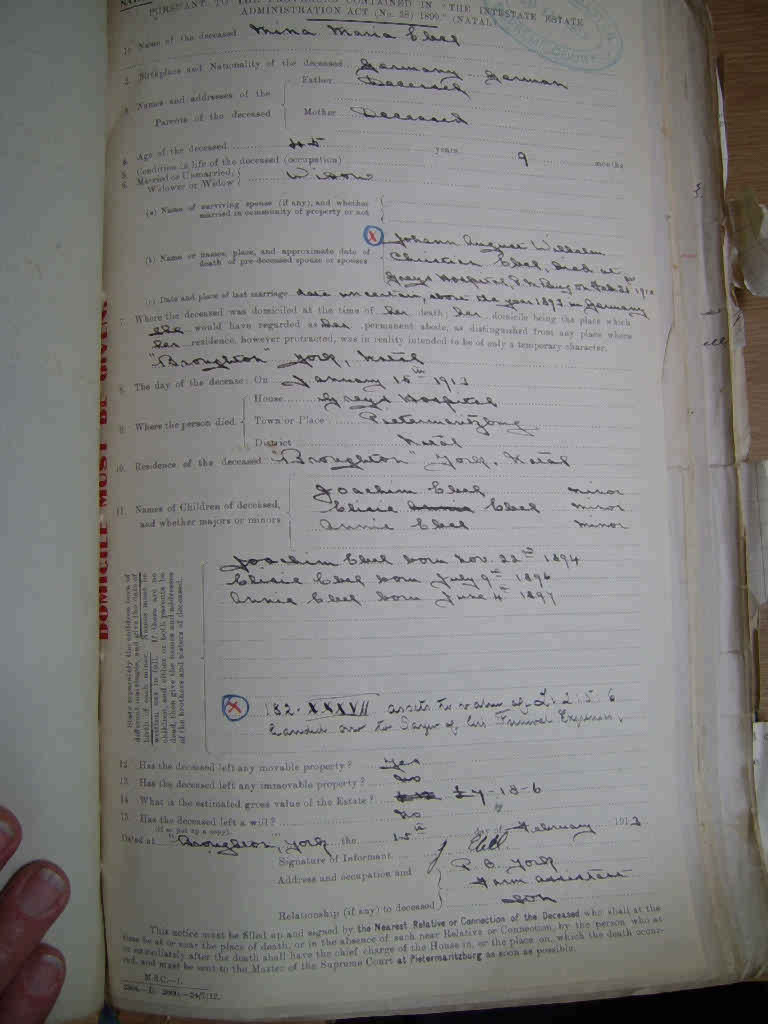 PURSUANT TO THE PROVISIONS CONTAINED IN "THE INTESTATE ESTATE
ADMINISTRATION ACT (No. 38) 1899" (NATAL)
1. Name of the deceased Mina Maria Ebel
2. Birthplace and Nationality of the deceased Germany German
Names and addresses of the Parents of the deceased
Father Deceased
Mother Deceased
4. Age of the deceased 45 years 9 months
5. Condition in life of the deceased (occupation)
6. Married or Unmarried, Widower or Widow Widow
(a) Name of surviving spouse (if any), and whether
married in community of property or not
(b) Name or names, place, and approximate date of
death of pre-deceased spouse or spouses
X Johann August Wilhelm
Christian Ebel, died at
Greys Hospital, P.M.Burg on Feb 21st 191
(c) Date and place of last marriage date uncertain, about the year 1893 in Germany
7. Where the deceased was domiciled at the time of her death; her domicile being the place which
she would have regarded as her permanent abode, as distinguished from any place where
her residence, however protracted, was in reality intended to be of only a temporary character.
"Broughton" York, Natal
8. The day of the decease: On January 15th 1913
9. Where the person died
House Greys Hospital
Town or Place Pietermaritzburg
District Natal
10. Residence of the deceased "Broughton" York, Natal
11. Names of Children of deceased,
and whether majors or minors
Joachim Ebel minor
Elsie Ebel minor
Annie Ebel minor
State separately the children born of
different marriages, and give the date of
birth of each minor. Names must be
written out in full. If there are no
children, and either or both parents be
dead, then give the names and addresses
of the brothers and sisters of deceased.
Joachim Ebel born Nov. 22nd 1894
Elsie Ebel born July 9th 1896
Annie Ebel born June 4th 1897
X 182. XXXVII assets to value of £1:2:5:6
handed over to Payer of his Funeral Expenses.
12. Has the deceased left any movable property? Yes
13. Has the deceased left any immovable property? No
14. What is the estimated gross value of the Estate? £7-18-6
15. Has the deceased left a will? No
(If so put up a copy).
Dated at "Broughton", York the 15th day of February 1913
Signature of Informant J Ebel
Address and occupation and P.O. York
Farm assistant
Relationship (if any) to deceased son
This notice must be filled up and signed by the Nearest Relative or Connection of the Deceased who shall at the
time be at or near the place of death, or in the absence of such near Relative or Connection, by the person who at
or immediately after the death shall have the chief charge of the House in, or the place on, which the death occur-
red, and must be sent to the Master of the Supreme Court at Pietermaritzburg as soon as possible.
M.S.C.—1.
DOMICILE MUST BE GIVEN